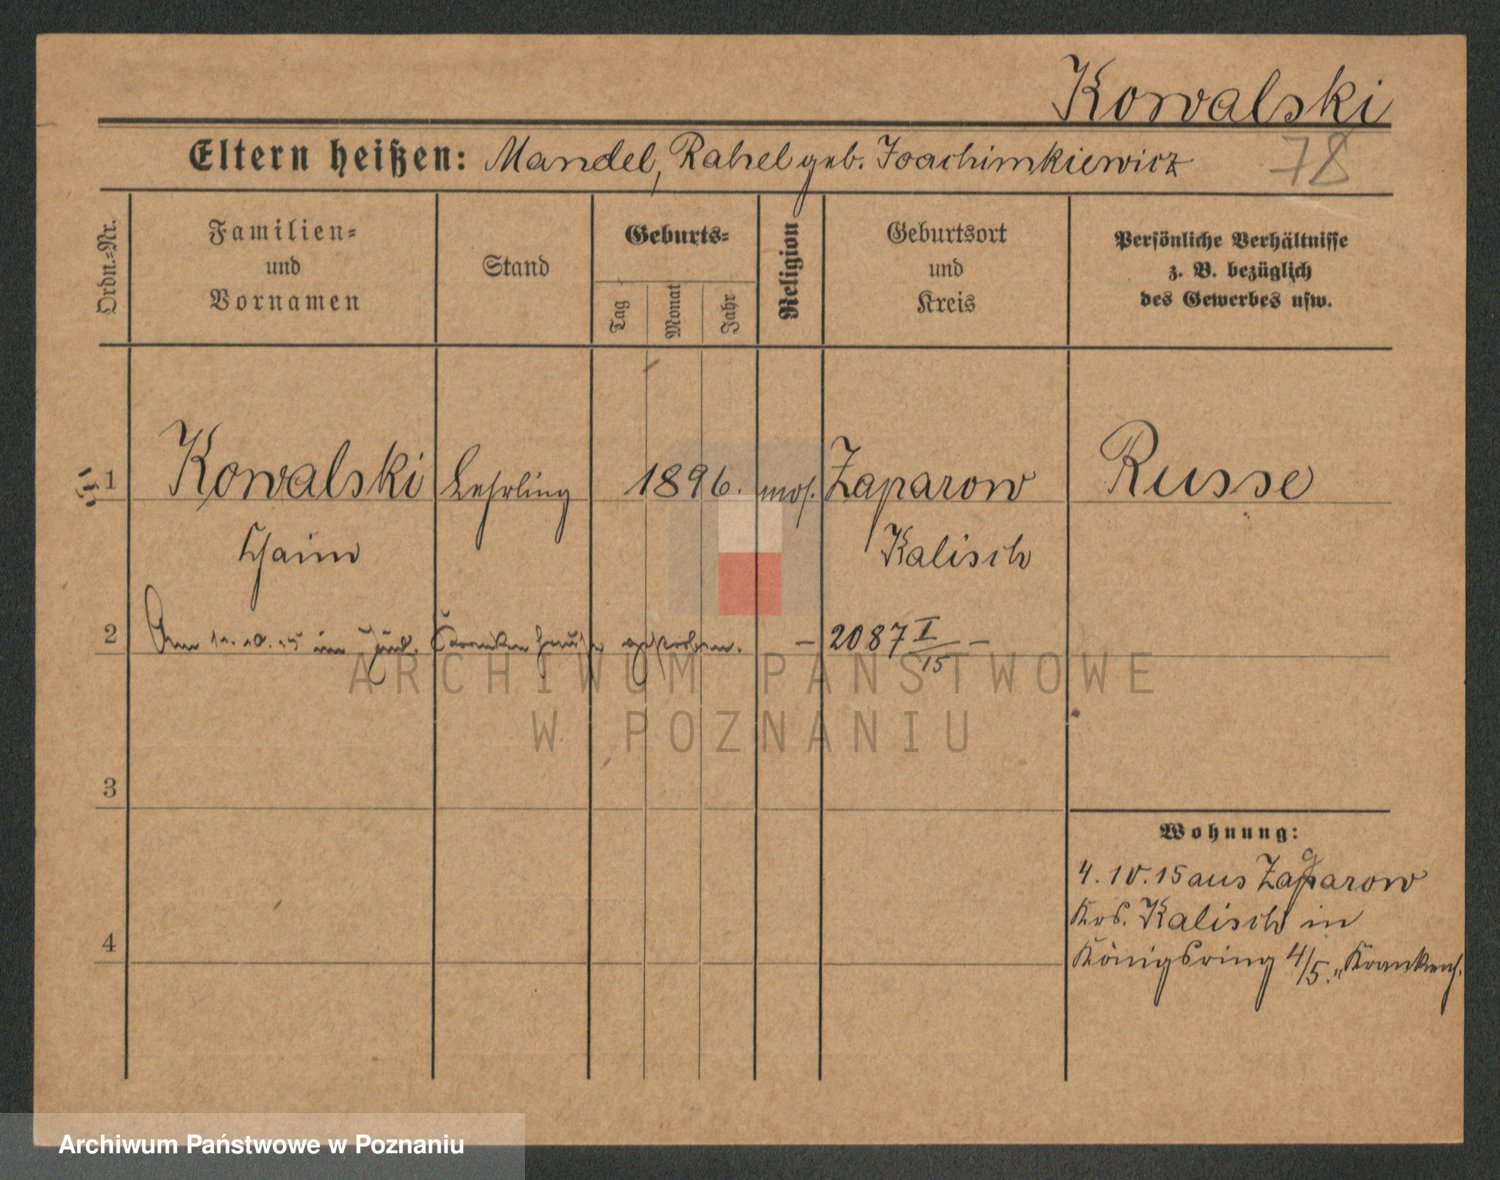 Kowalski
Eltern heißen: Mandel, Rahel geb. Joachimkiewicz 78
Ordn.-Nr.
Familien-
und
Vornamen
Stand
Geburts-
Tag
Monat
Jahr
Religion
Geburtsort
und
Kreis
Persönliche Verhältnisse
z. B. bezüglich
des Gewerbes usw.
1 Kowalski Lehrling 1896. mos. Zaparow Russe
Chaim Kalisch
2 Am 10.15 im Jüd. Krankenhause gestorben. – 2087 I/15 –
ARCHIWUM PAŃSTWOWE
W POZNANIU
3
Wohnung:
4.10.15 aus Zagarow
Krs. Kalisch in
4 Königsring 4/5. "Krankenh.
Archiwum Państwowe w Poznaniu